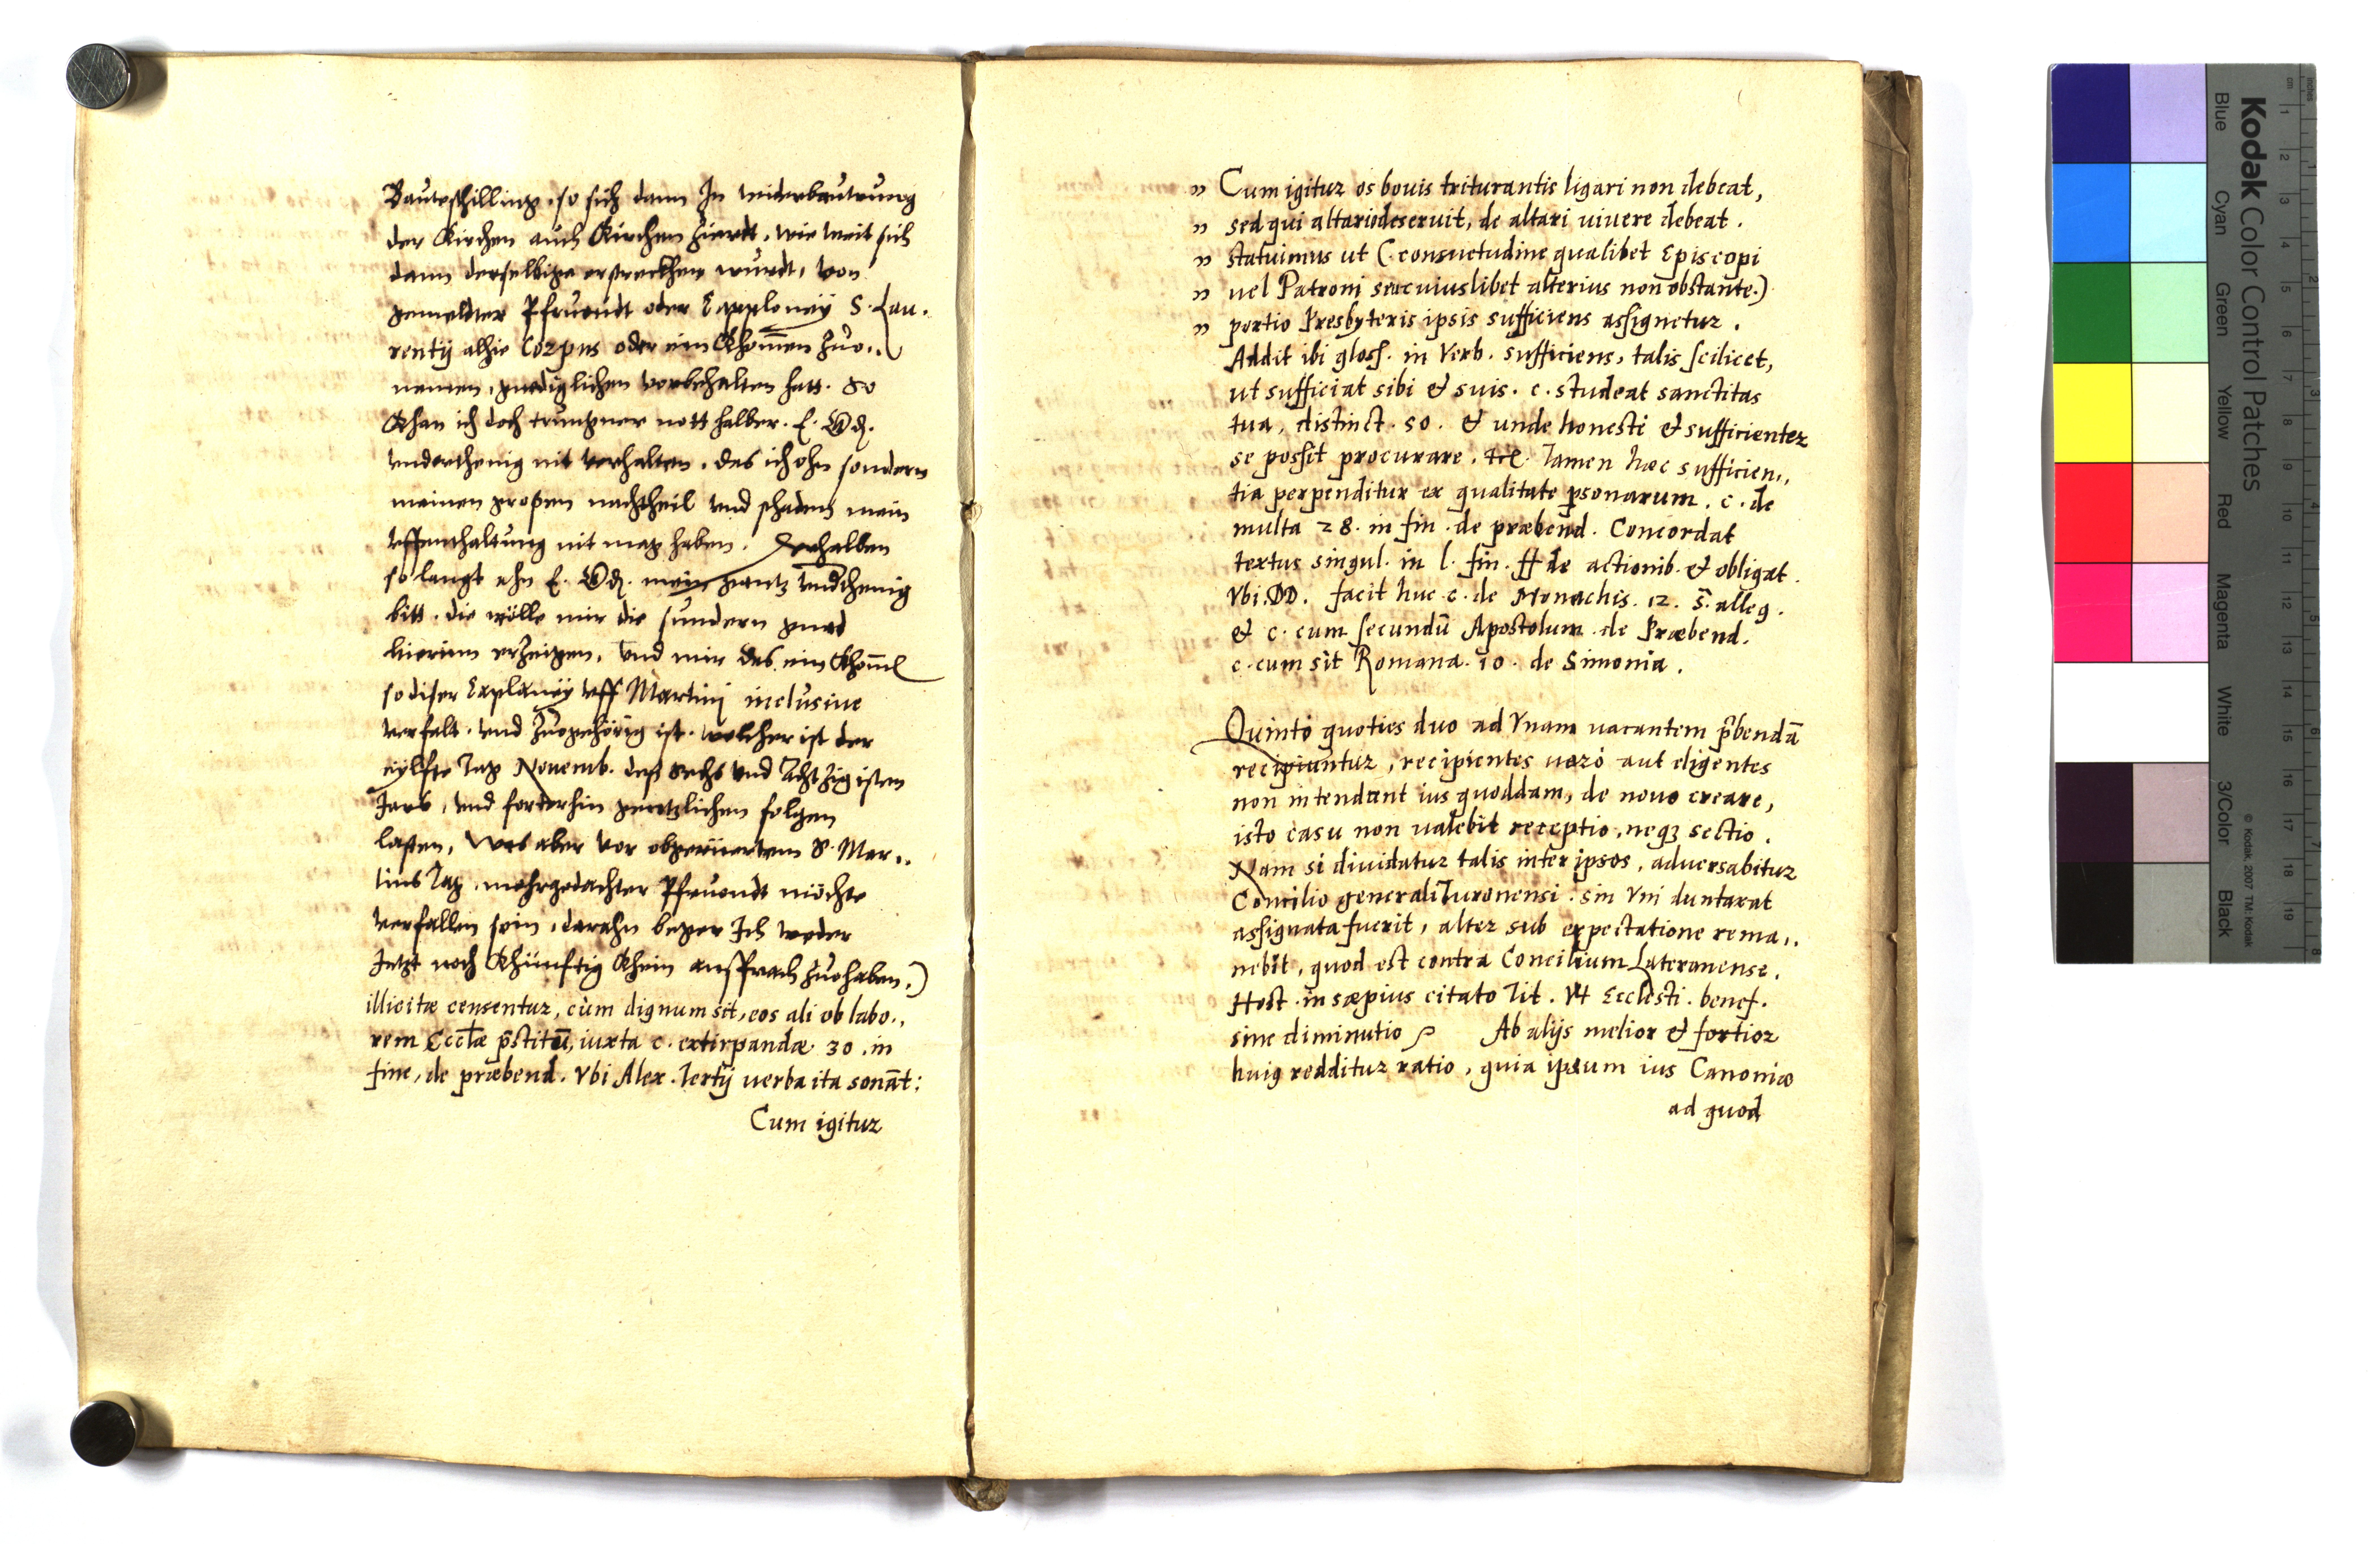 Bauwschilling, so sich dann In widerbauwung
der Kirchen auch Kirchen Zierdt, wie weit sich
dann derselbige erstreckhen wurdt, von
gemeldter Pfruondt oder Capploneÿ S. Lau-
rentÿ alhie Corpus oder ein Khom̄en Zuo„
nemen, gnediglichen vorbehalten hatt. So
Khan ich doch trungner nott halber. E. Gd.
underthenig nit verhalten, das ich ohn sondern
meinen großen nachtheil und schadens mein
uffenthaltung nit mag haben. Derhalben
so langt ahn E. Gd. mein gantz undthenig
bitt, die wölle mir die sundern gnad
hierinn erZeigen, und mir das ein Khom̄e
so diser Caplaneÿ uff Martini inclusiue
verfalt, und Zuogehörig ist, welcher ist der
eÿlfte Tag Nouemb. deß Sechs und AchtZigisten
Jars, und forterhin gentzlichen folgen
laßen, Was aber vor obgerüertem S. Mar„
tins Tag, mehrgedachter Pfruondt möchte
verfallen sein, darahn beger Ich weder
Jetzt noch Khünftig Khein ansprach Zuo haben.)
illicitæ censentur, cùm dignum sit, eos ali ob labo„
rem Eccłæ p̄stitū, iuxta c. extirpandæ 30. in
fine, de præbend. Vbi Alex. Tertÿ uerba ita sonāt:
Cum igitur
„ Cum igitur os bouis triturantis ligari non debeat,
„ sed qui altario deseruit, de altari uiuere debeat.
„ statuimus ut (consuetudine qualibet Episcopi
„ uel Patroni seu cuiuslibet alterius non obstante.)
„ portio Presbyteris ipsis sufficiens assignetur.
Addit ibi gloss. in Verb. sufficiens, talis scilicet,
ut sufficiat sibi & suis. c. studeat sanctitas
tua, distinct. 50. & unde honesti & sufficienter
se possit procurare. Tamen hæc sufficien„
tia perpenditur ex qualitate psonarum. c. de
multa 28. in fin. de præbend. Concordat
textus singul. in l. fin. ff de actionib. & obligat.
Vbi. DD. facit huc c. de Monachis. 12. s̄. alleg.
& c. cum secundū Apostolum de Præbend.
c. cum sit Romana. 10. de Simonia.
Quintò quoties duo ad Vnam uacantem p̄bendā
recipiuntur, recipientes uerò aut eligentes
non intendant ius quoddam, de nouo creare,
isto casu non ualebit receptio, neqȝ sectio.
Nam si diuidatur talis inter ipsos, aduersabitur
Concilio generali Turonensi. sin Vni duntaxat
assignata fuerit, alter sub expectatione rema„
nebit, quod est contra Concilium Lateranense.
Host. in sæpius citato Tit. Vt Ecclesti. benef.
sine diminutio Ab alijs melior & fortior
huiꝯ redditur ratio, quia ipsum ius Canonicū
ad quod